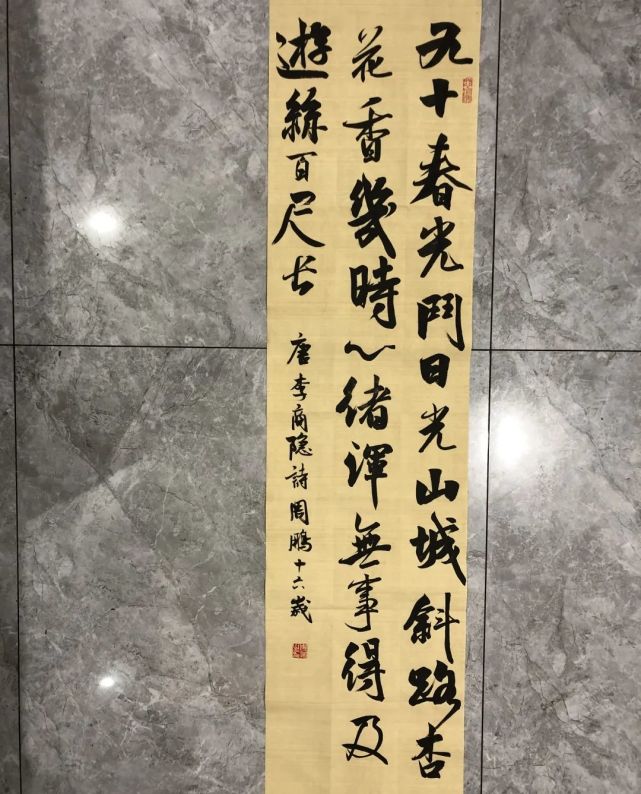 九十春光鬥日光山城斜路杏
花香幾時心緒渾無事得及
遊絲百尺長
唐李商隐詩周鵬十六歲